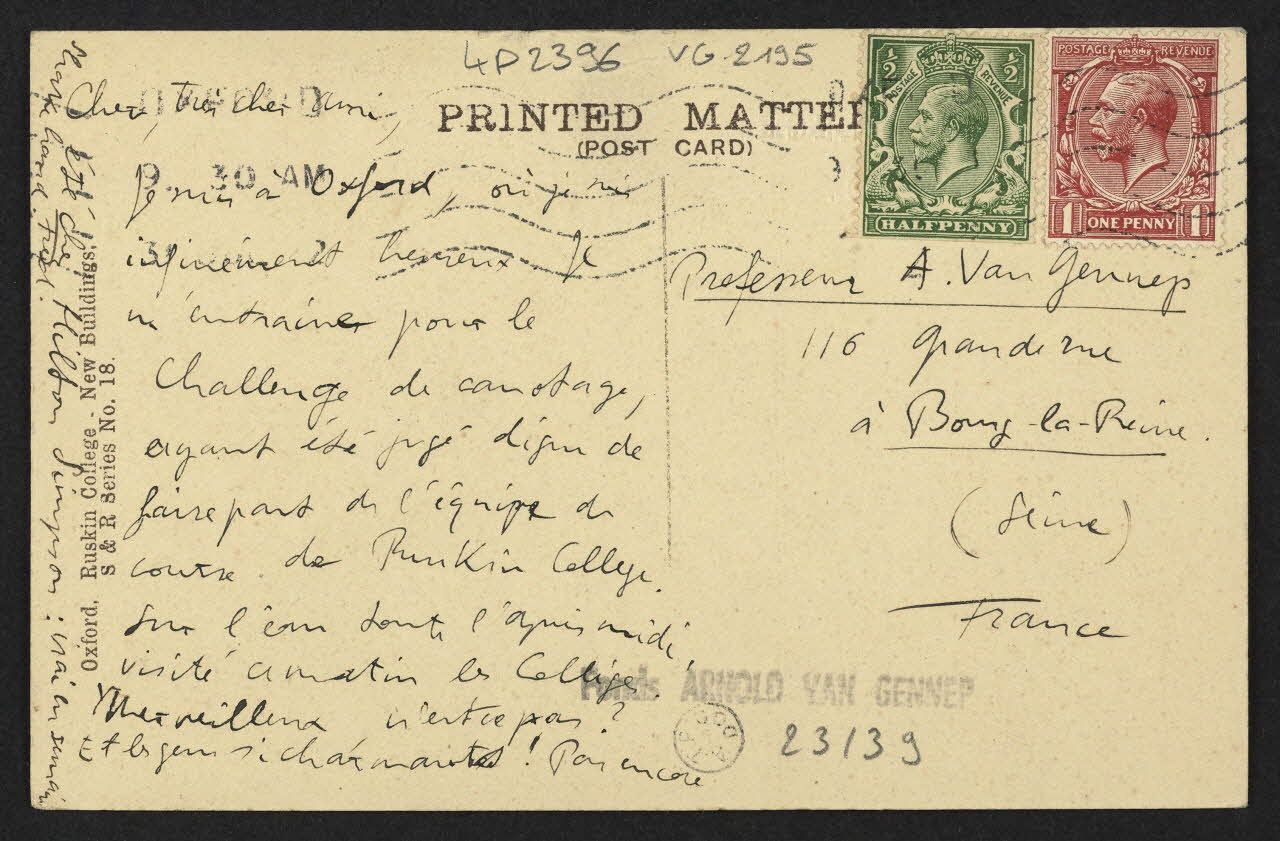 4P2396 VG 2195
PRINTED MATTER
(POST CARD)
OXFORD
9. 30 AM
1/2 1/2
POSTAGE REVENUE
HALFPENNY
POSTAGE REVENUE
1 ONE PENNY 1
Cher, très cher ami,
Je suis à Oxford, où je suis
infiniment heureux. Je
m'entraîner pour le
Challenge de canotage,
ayant été jugé digne de
faire part de l'équipe de
course de Ruskin College.
Sur l'eau toute l'après midi,
visité ce matin les Collèges.
Merveilleux n'est ce pas ?
Et les gens si charmants ! Pas encore
été chez Hilton Simpson : vrai en semai
Shake hand. Fred.
Oxford, Ruskin College - New Buildings.
S & R Series No. 18.
Professeur A. Van Gennep
116 Grande rue
à Bourg-la-Reine.
(Seine)
France
Fonds ARNOLD VAN GENNEP
23/39